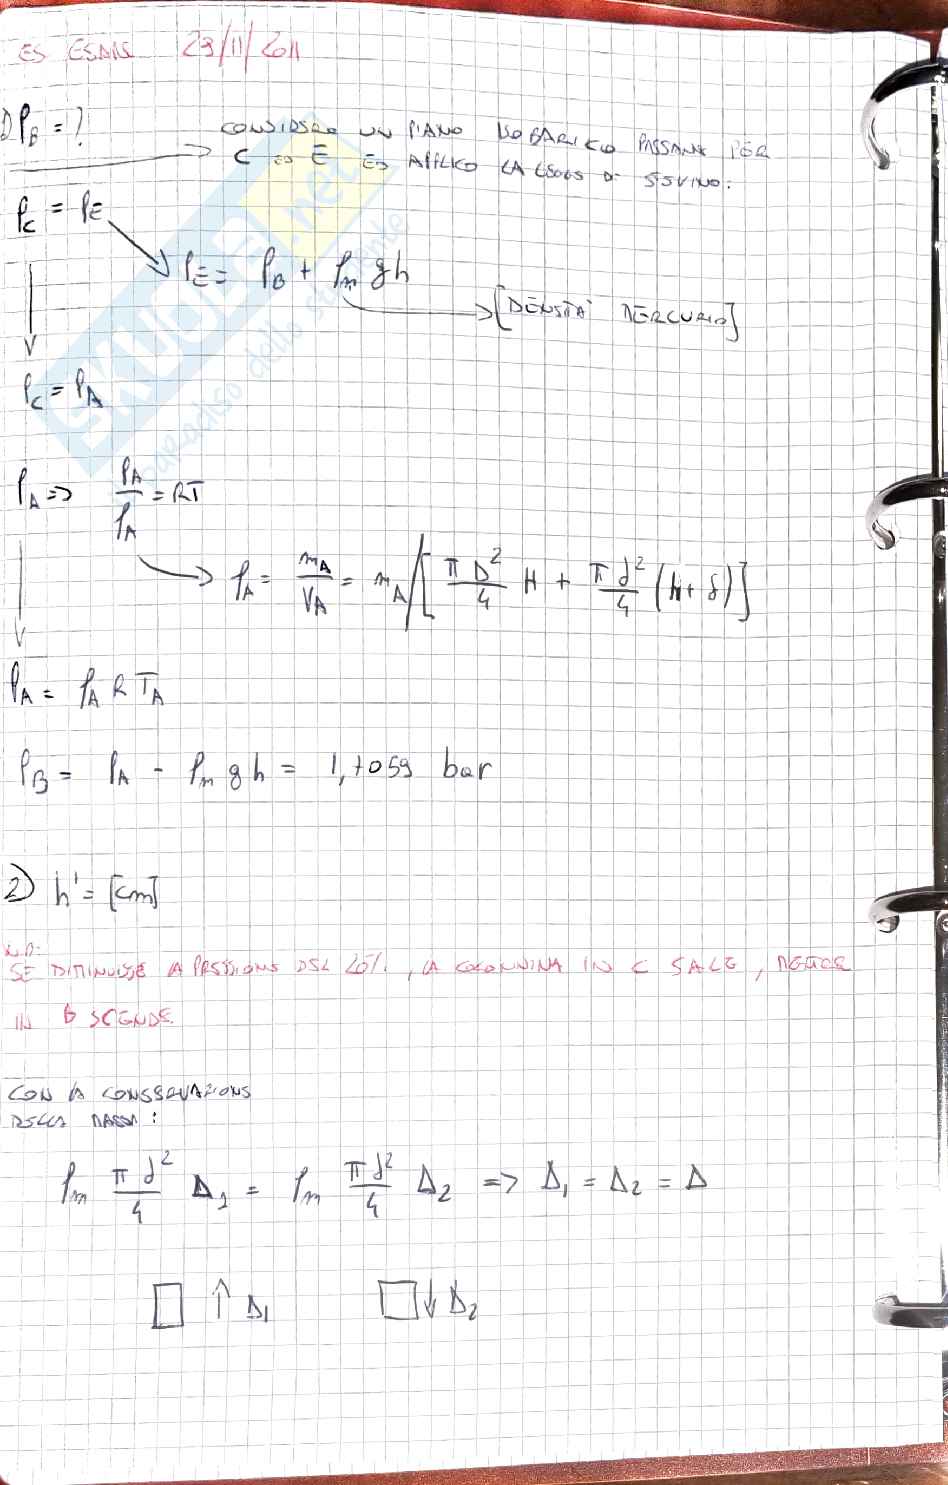 ES ESAME 29/11/2011
1) P_B = ?
CONSIDERO UN PIANO ISOBARICO PASSANTE PER
C ED E ED APPLICO LA LEGGE DI STEVINO:
P_C = P_E
P_E = P_B + ρ_m g h
[DENSITÀ MERCURIO]
P_C = P_A
P_A => P_A / ρ_A = RT
ρ_A = m_A / V_A = m_A / [ π D² / 4 H + π d² / 4 (h + δ) ]
P_A = ρ_A R T_A
P_B = P_A - ρ_m g h = 1,7059 bar
2) h' = [cm]
N.B:
SE DIMINUISCE LA PRESSIONE DEL 20%, LA COLONNINA IN C SALE, MENTRE
IN B SCENDE
CON LA CONSERVAZIONE
DELLA MASSA:
ρ_m π d² / 4 Δ_1 = ρ_m π d² / 4 Δ_2 => Δ_1 = Δ_2 = Δ
↑ Δ_1 ↓ Δ_2
SKUOLA.net
il paradiso dello studente